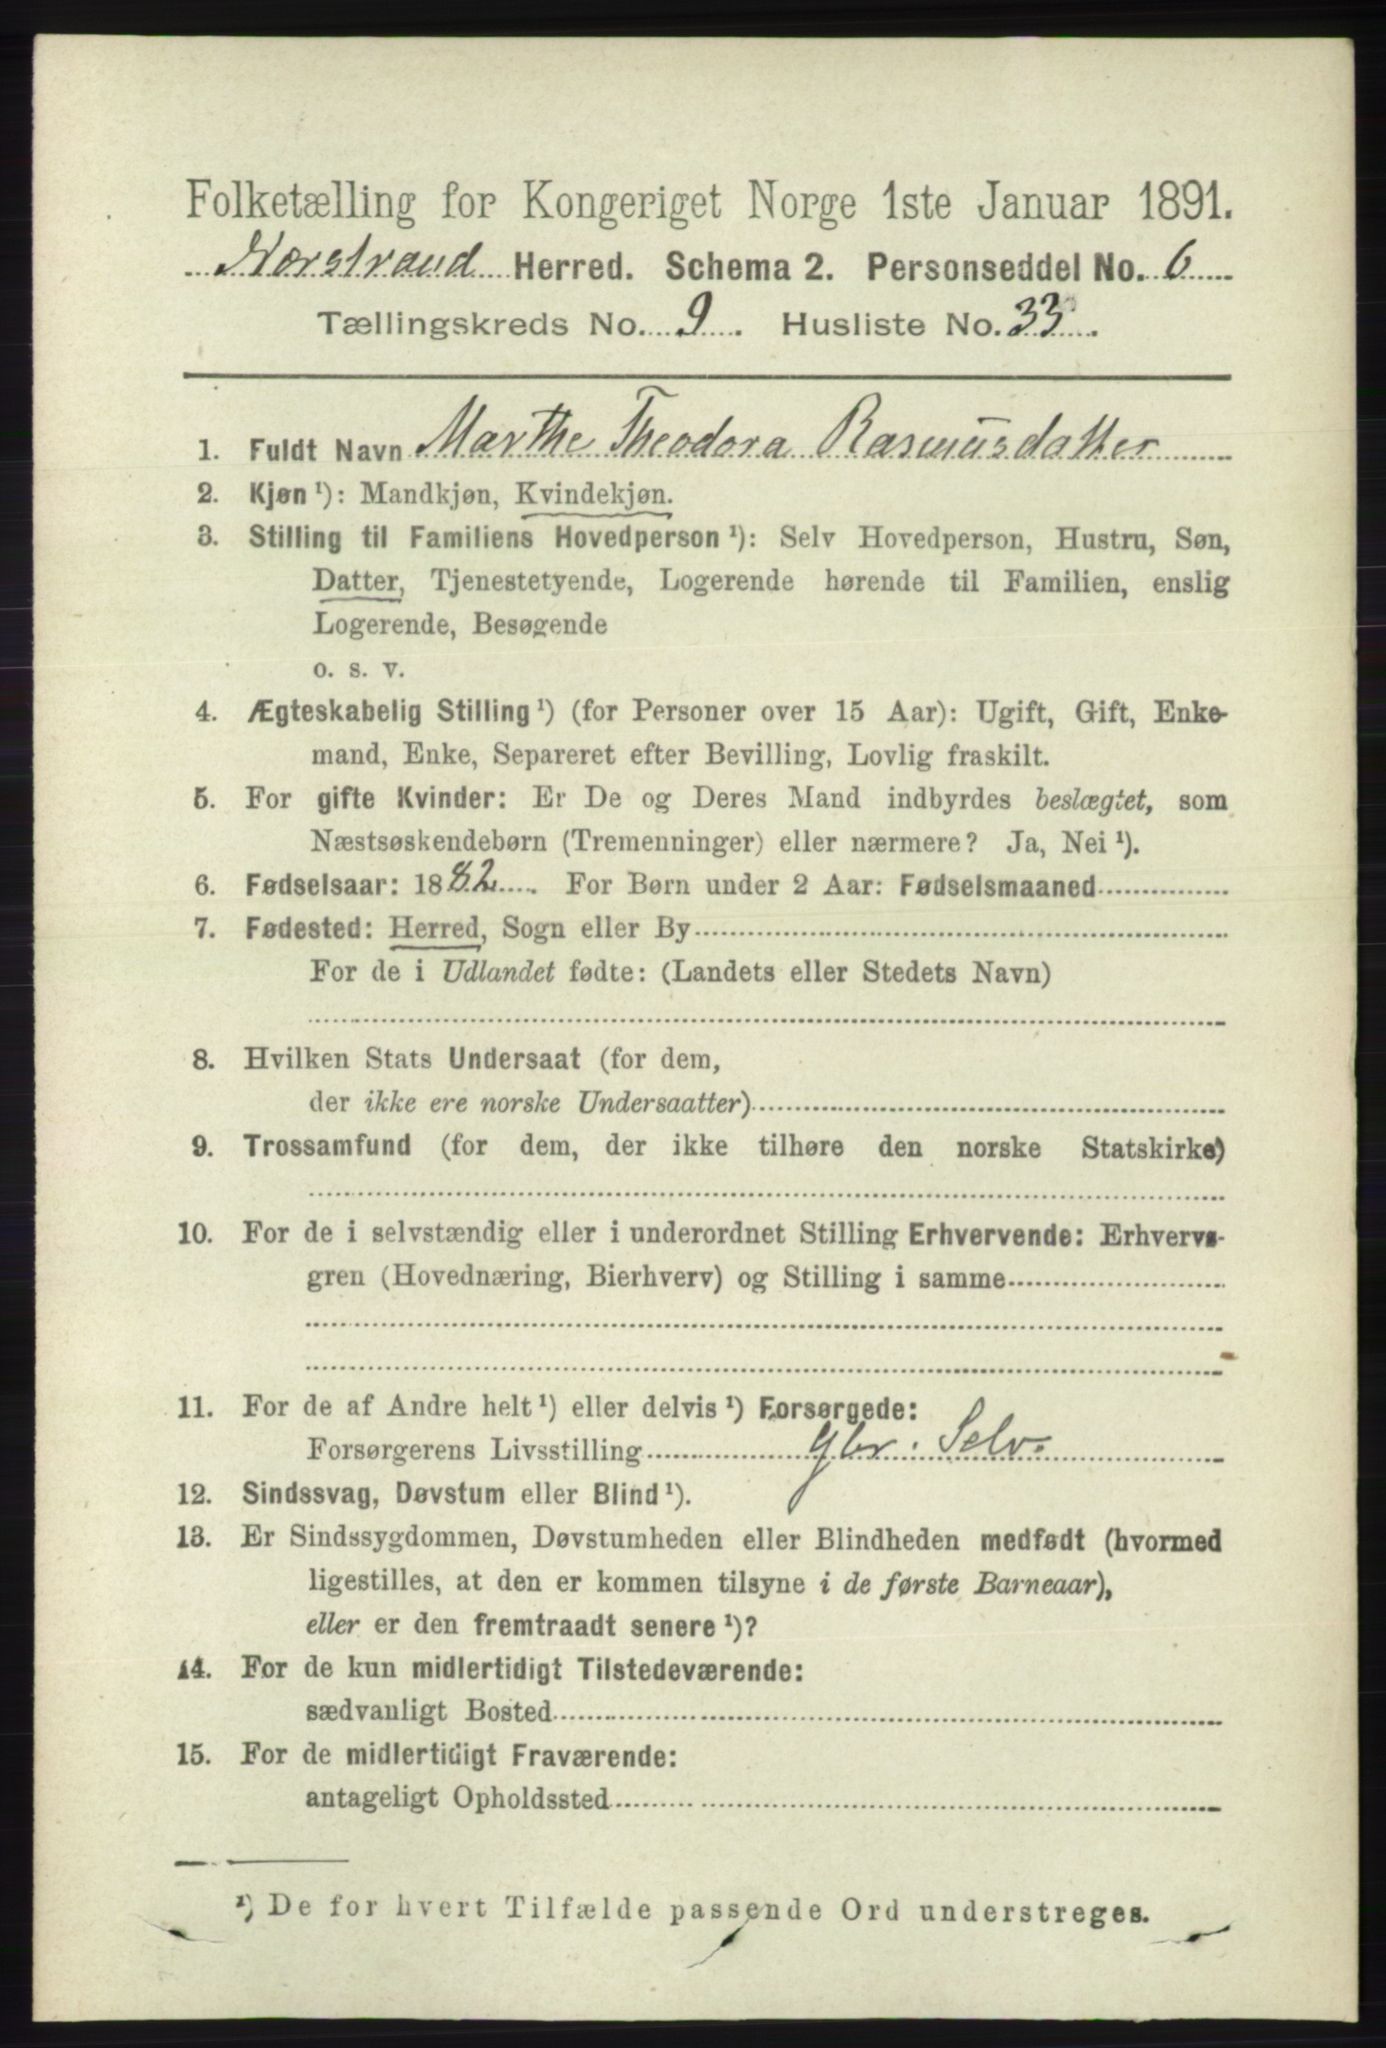 Folketælling for Kongeriget Norge 1ste Januar 1891.
Nærstrand Herred. Schema 2. Personseddel No. 6
Tællingskreds No. 9. Husliste No. 33.
1. Fuldt Navn Marthe Theodora Rasmusdatter
2. Kjøn ¹): Mandkjøn, Kvindekjøn.
3. Stilling til Familiens Hovedperson ¹): Selv Hovedperson, Hustru, Søn,
Datter, Tjenestetyende, Logerende hørende til Familien, enslig
Logerende, Besøgende
o. s. v.
4. Ægteskabelig Stilling ¹) (for Personer over 15 Aar): Ugift, Gift, Enke-
mand, Enke, Separeret efter Bevilling, Lovlig fraskilt.
5. For gifte Kvinder: Er De og Deres Mand indbyrdes beslægtet, som
Næstsøskendebørn (Tremenninger) eller nærmere? Ja, Nei ¹).
6. Fødselsaar: 1882. For Børn under 2 Aar: Fødselsmaaned
7. Fødested: Herred, Sogn eller By
For de i Udlandet fødte: (Landets eller Stedets Navn)
8. Hvilken Stats Undersaat (for dem,
der ikke ere norske Undersaatter)
9. Trossamfund (for dem, der ikke tilhøre den norske Statskirke)
10. For de i selvstændig eller i underordnet Stilling Erhvervende: Erhvervs-
gren (Hovednæring, Bierhverv) og Stilling i samme
11. For de af Andre helt ¹) eller delvis ¹) Forsørgede:
Forsørgerens Livsstilling Gbr. Selv.
12. Sindssvag, Døvstum eller Blind ¹).
13. Er Sindssygdommen, Døvstumheden eller Blindheden medfødt (hvormed
ligestilles, at den er kommen tilsyne i de første Barneaar),
eller er den fremtraadt senere ¹)?
14. For de kun midlertidigt Tilstedeværende:
sædvanligt Bosted
15. For de midlertidigt Fraværende:
antageligt Opholdssted
¹) De for hvert Tilfælde passende Ord understreges.